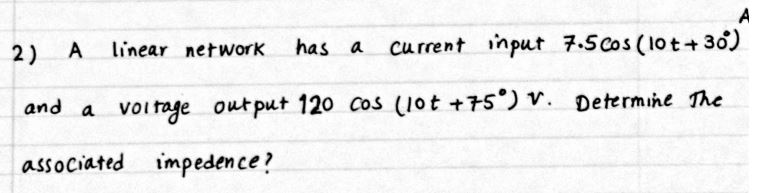 A
2) A linear network has a current input 7.5 cos (10t + 30°)
and a voltage output 120 cos (10t + 75°) V. Determine The
associated impedence?